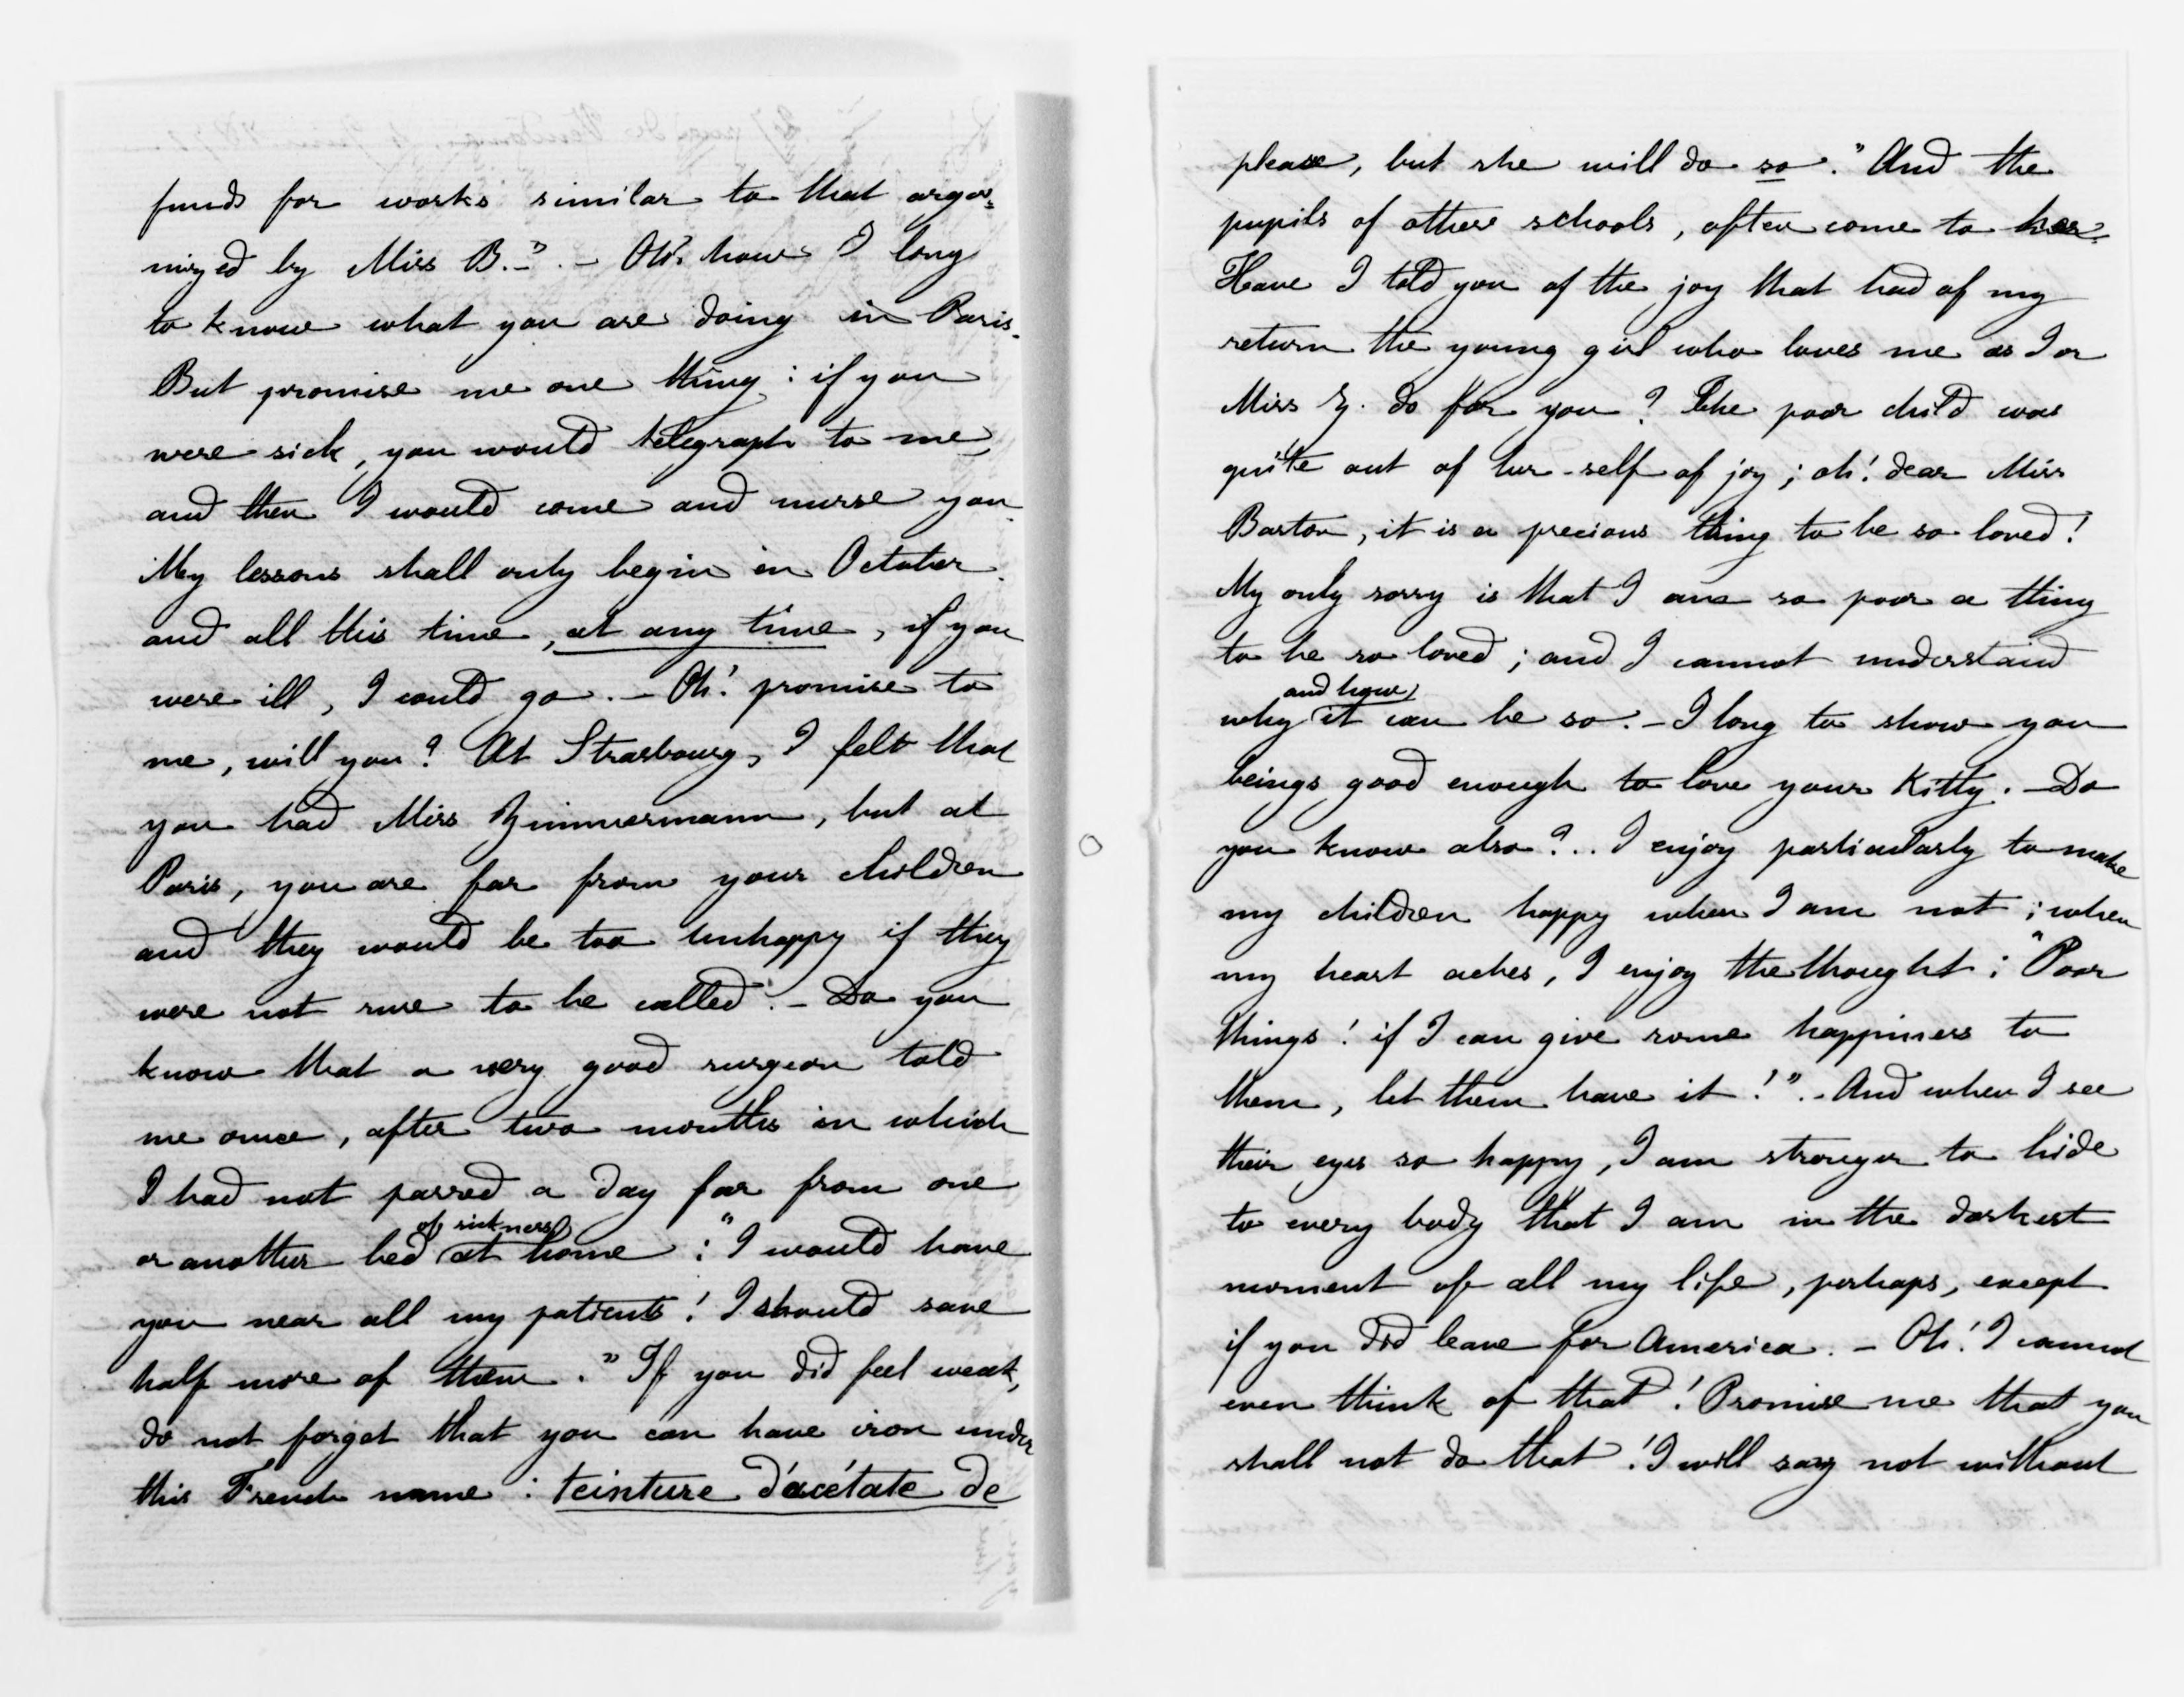 funds for works similar to that orga=
nized by Miss B.-". - Oh! how I long
to know what you are doing in Paris.
But promise me one thing : if you
were sick, you would telegraph to me,
and then I would come and nurse you.
My lessons shall only begin in October
and all this time, at any time, if you
were ill, I could go. - Oh! promise to
me, will you? At Strasbourg, I felt that
you had Miss Zimmermann, but at
Paris, you are far from your children
and they would be too unhappy if they
were not sure to be called. - Do you
know that a very good surgeon told
me once, after two months in which
I had not passed a day far from one
of sickness
or another bed at home : "I would have
you near all my patients! I should save
half more of them." If you did feel weak,
do not forget that you can have iron under
this French name : teinture d'acétate de
please, but she will do so." And the
pupils of other schools, often come to her.
Have I told you of the joy that had of my
return the young girl who loves me as I or
Miss Z. do for you? The poor child was
quite out of her-self of joy ; oh! dear Miss
Barton, it is a precious thing to be so loved!
My only sorry is that I am so poor a thing
to be so loved ; and I cannot understand
and how
why it can be so. - I long to show you
beings good enough to love your Kitty. - Do
you know also?.. I enjoy particularly to make
my children happy when I am not ; when
my heart aches, I enjoy the thought : "Poor
things! if I can give some happiness to
them, let them have it!". - And when I see
their eyes so happy, I am stronger to hide
to every body that I am in the darkest
moment of all my life, perhaps, except
if you did leave for America. - Oh! I cannot
even think of that! Promise me that you
shall not do that! I will say not without